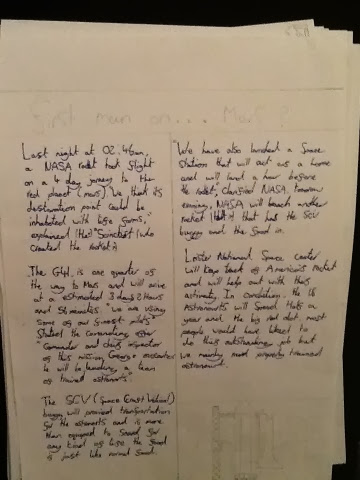 First man on... Mars?
Last night at 02.46am,
a NASA rocket took flight
on a 4 day journey to the
red planet (mars) "We think its
destination point could be
inhabited with life forms,"
explained Scientist (who
created the rocket)
The G4H, is one quarter of
the way to Mars and will arrive
at a estimated 3 days 2 Hours
and 5 minutes "we are using
some of our finest pilots"
Stated the Commanding officer
Comander and chief inspector
of this mission George
he will be leading a team
of trained astronauts.
The SCV (Space Craft Vehicle)
buggy will provied transportation
for the astronauts and is more
than equiped to search for
any kind of life. the food
is just like normal food.
We have also launched a Space
Station that will act as a home
and will land a hour before
the rocket, clarified NASA. tomorrow
evening, NASA will launch another
rocket that has the SCV
buggy and the food in.
Leister National Space center
will keep track of American's rocket
and will help out with this
In conclusion the 16
Astronauts will spend half a
year on the big red dot. most
people would have liked to
do this outstanding job but
we mainly need properly trained
astronaut.